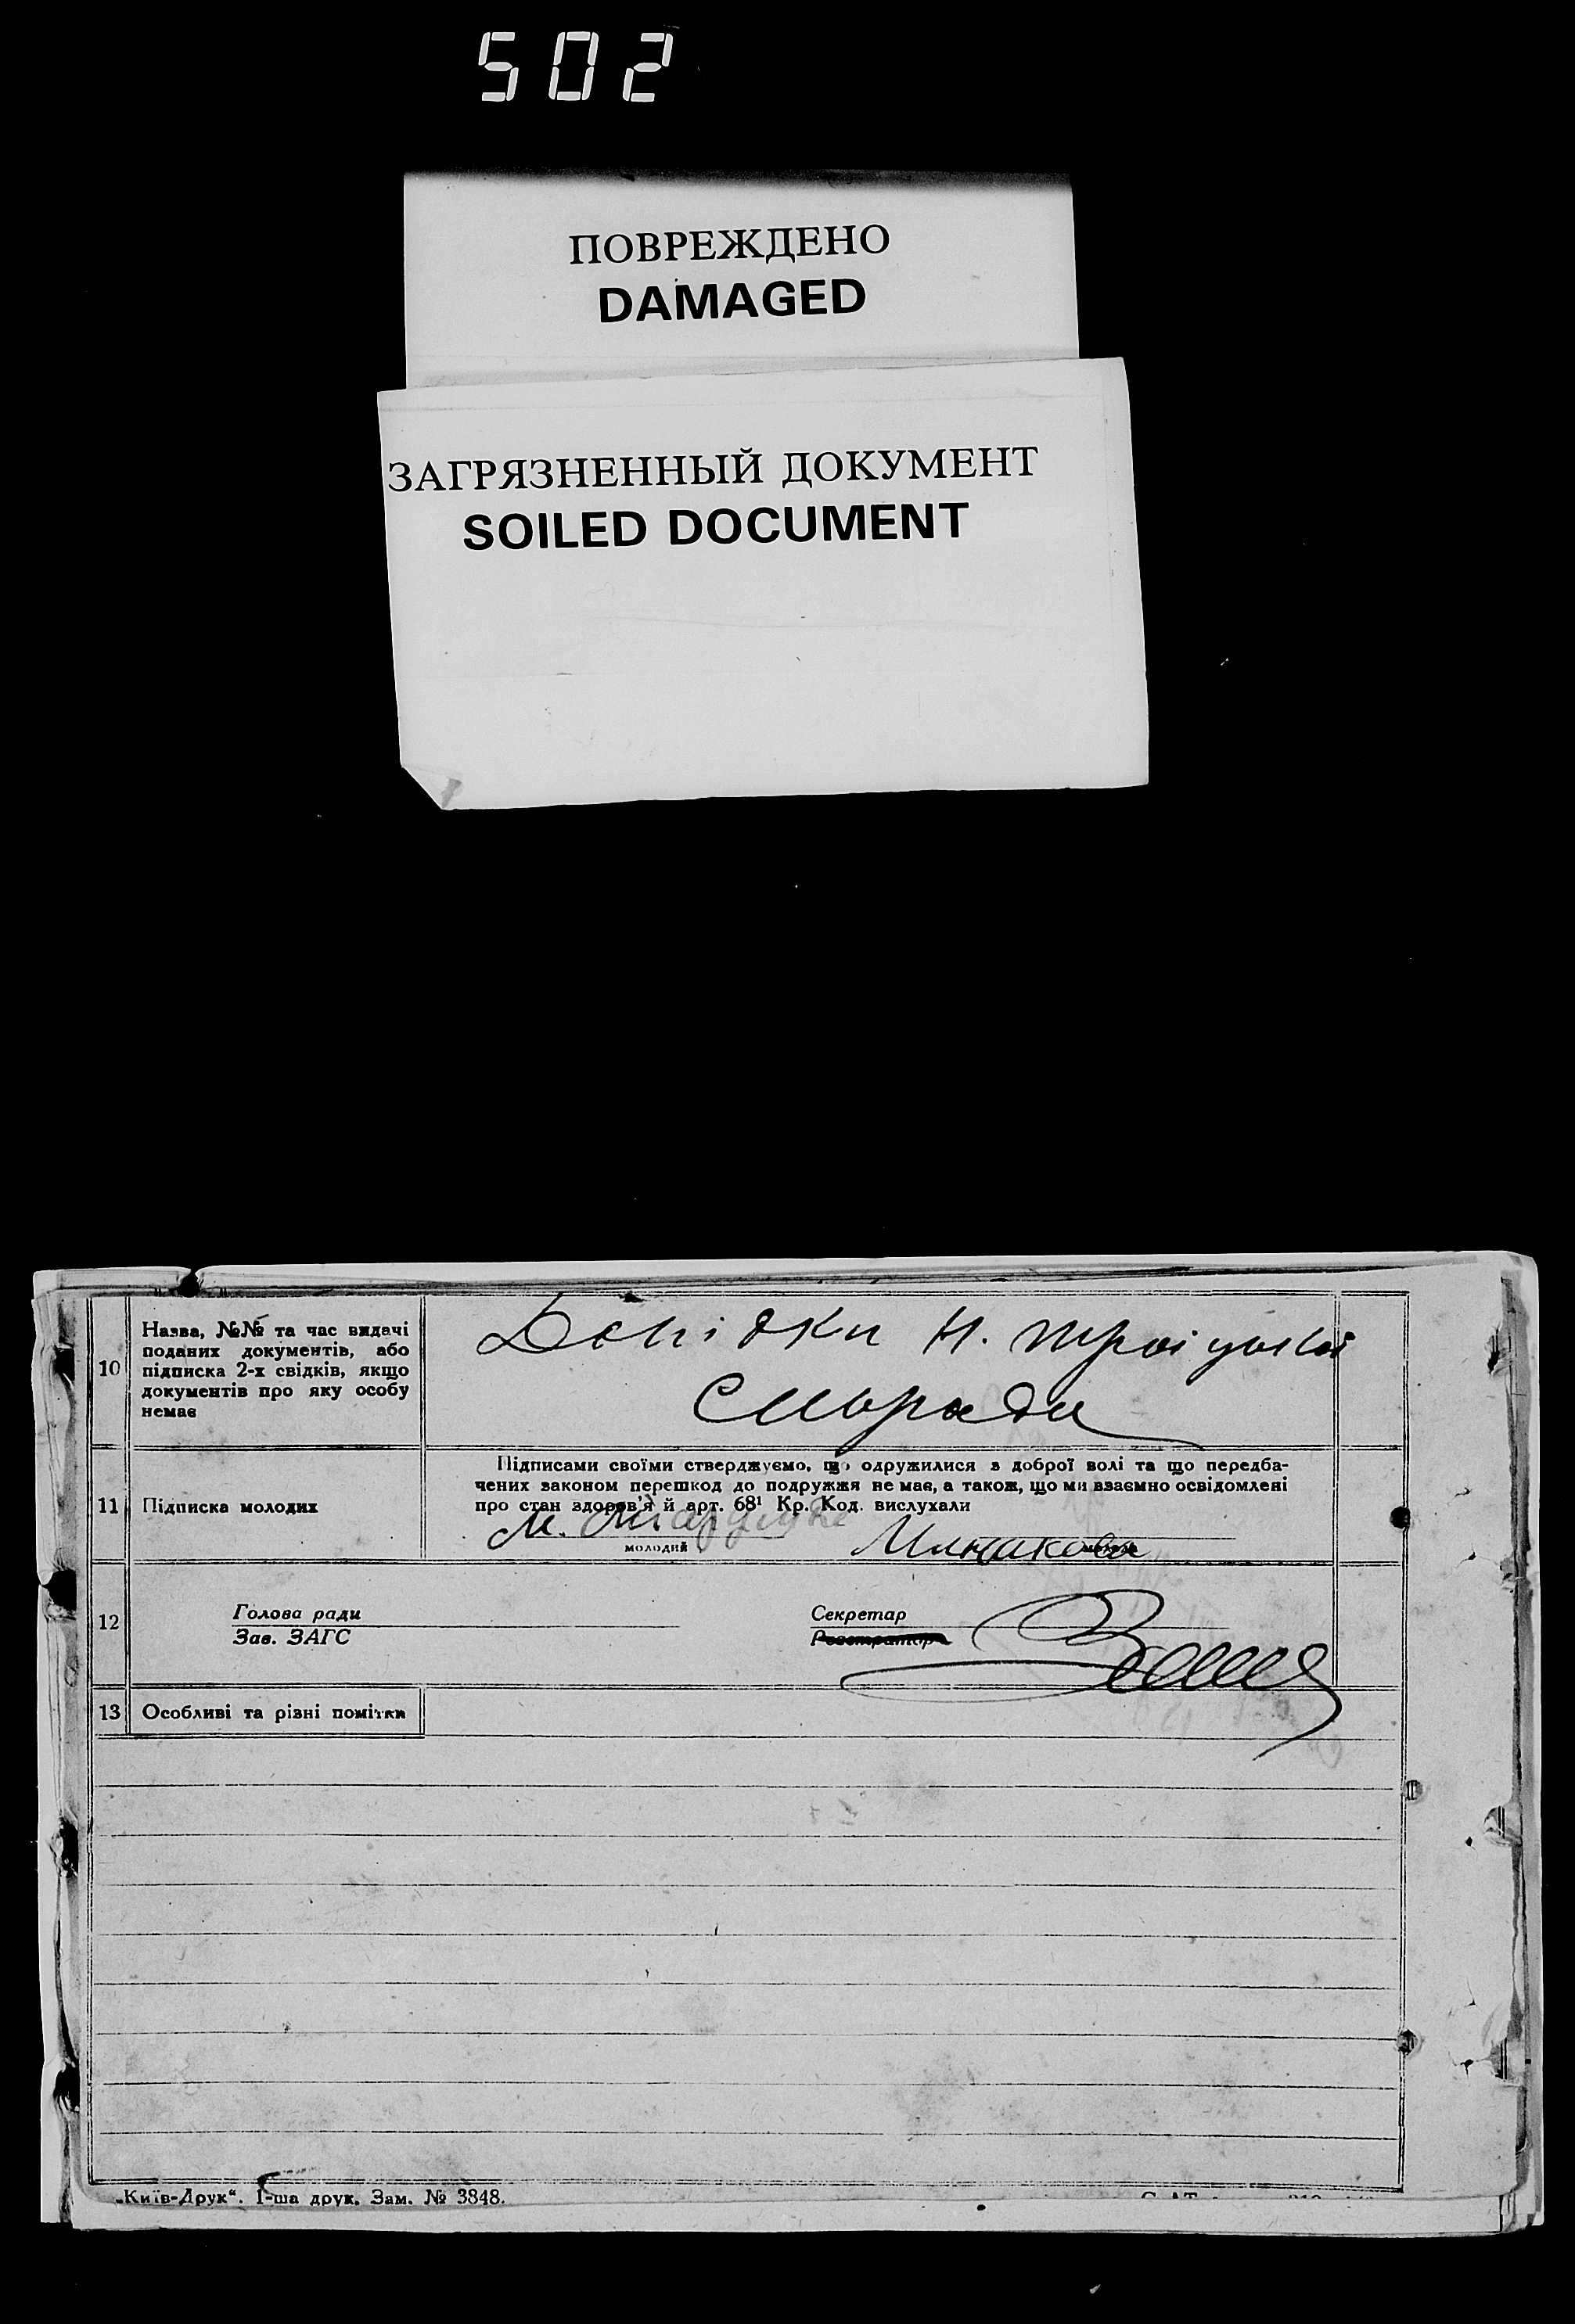 502
ПОВРЕЖДЕНО
DAMAGED
ЗАГРЯЗНЕННЫЙ ДОКУМЕНТ
SOILED DOCUMENT
10
Назва, №№ та час видачі
поданих документів, або
підписка 2-х свідків, якщо
документів про яку особу
немає
Довідки Н. Троіцької
Сільради
11
Підписка молодих
Підписами своїми стверджуємо, що одружилися з доброї волі та що передба-
чених законом перешкод до подружжя не має, а також, що ми взаємно освідомлені
про стан здоров'я й арт. 68¹ Кр. Код. вислухали
М.
молодий
Минакова
12
Голова ради
Зав. ЗАГС
Секретар
Реєстратор
13
Особливі та різні помітки
„Київ-Друк“. 1-ша друк. Зам. № 3848.